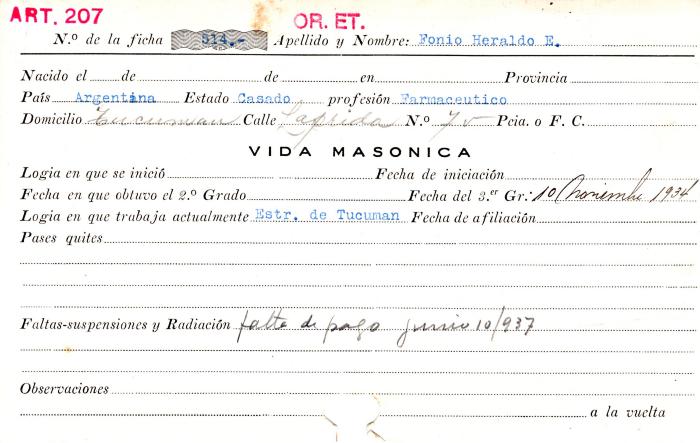 ART. 207
OR. ET.
N.º de la ficha 514.- Apellido y Nombre: Fonio Heraldo E.
Nacido el de de en Provincia
País Argentina Estado Casado profesión Farmaceutico
Domicilio Tucuman Calle Laprida N.º Pcia. o F. C.
VIDA MASONICA
Logia en que se inició Fecha de iniciación
Fecha en que obtuvo el 2.º Grado Fecha del 3.er Gr.: 10/Noviembre 1934
Logia en que trabaja actualmente Estr. de Tucuman Fecha de afiliación
Pases quites
Faltas-suspensiones y Radiación falta de pago junio 10/937
Observaciones
a la vuelta